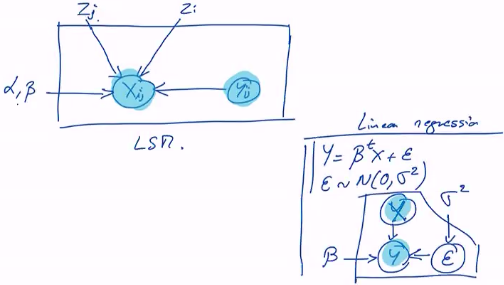 Zj Zi
α, β Xij Yij
LSM.
Linear regression
Y = βᵗX + ε
ε ~ N(0, σ²)
X σ²
β Y ε